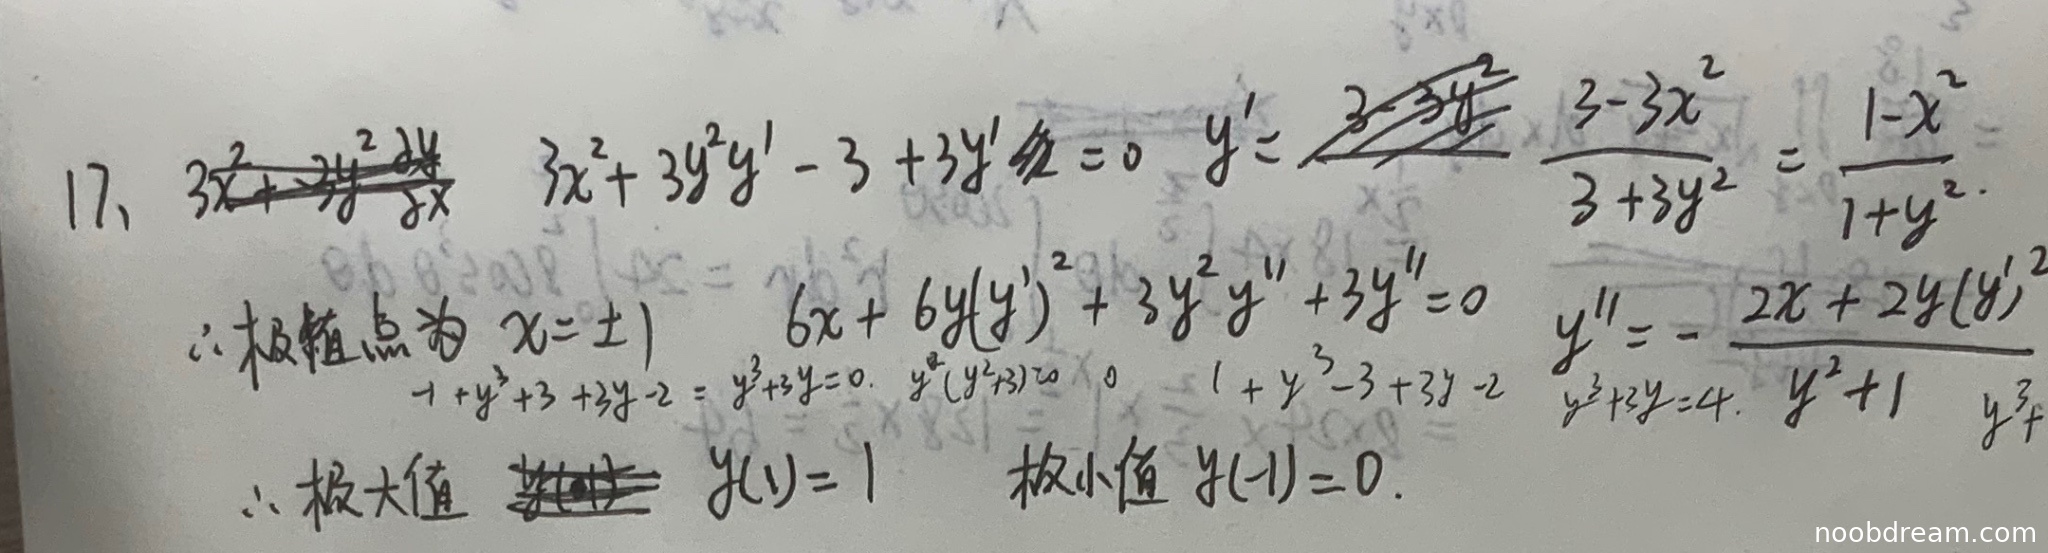 17、 3x²+3y² dy/dx 3x²+3y²y'-3+3y'=0 y'= 3-3y² (3-3x²)/(3+3y²) = (1-x²)/(1+y²).
∴极值点为 x=±1 6x+6y(y')²+3y²y''+3y''=0 y''=-(2x+2y(y')²)/(y²+1)
-1+y³+3+3y-2=y³+3y=0. y(y²+3)=0 0 1+y³-3+3y-2 y³+3y=4. y³+
∴极大值 y(1)=1 极小值 y(-1)=0.
noobdream.com